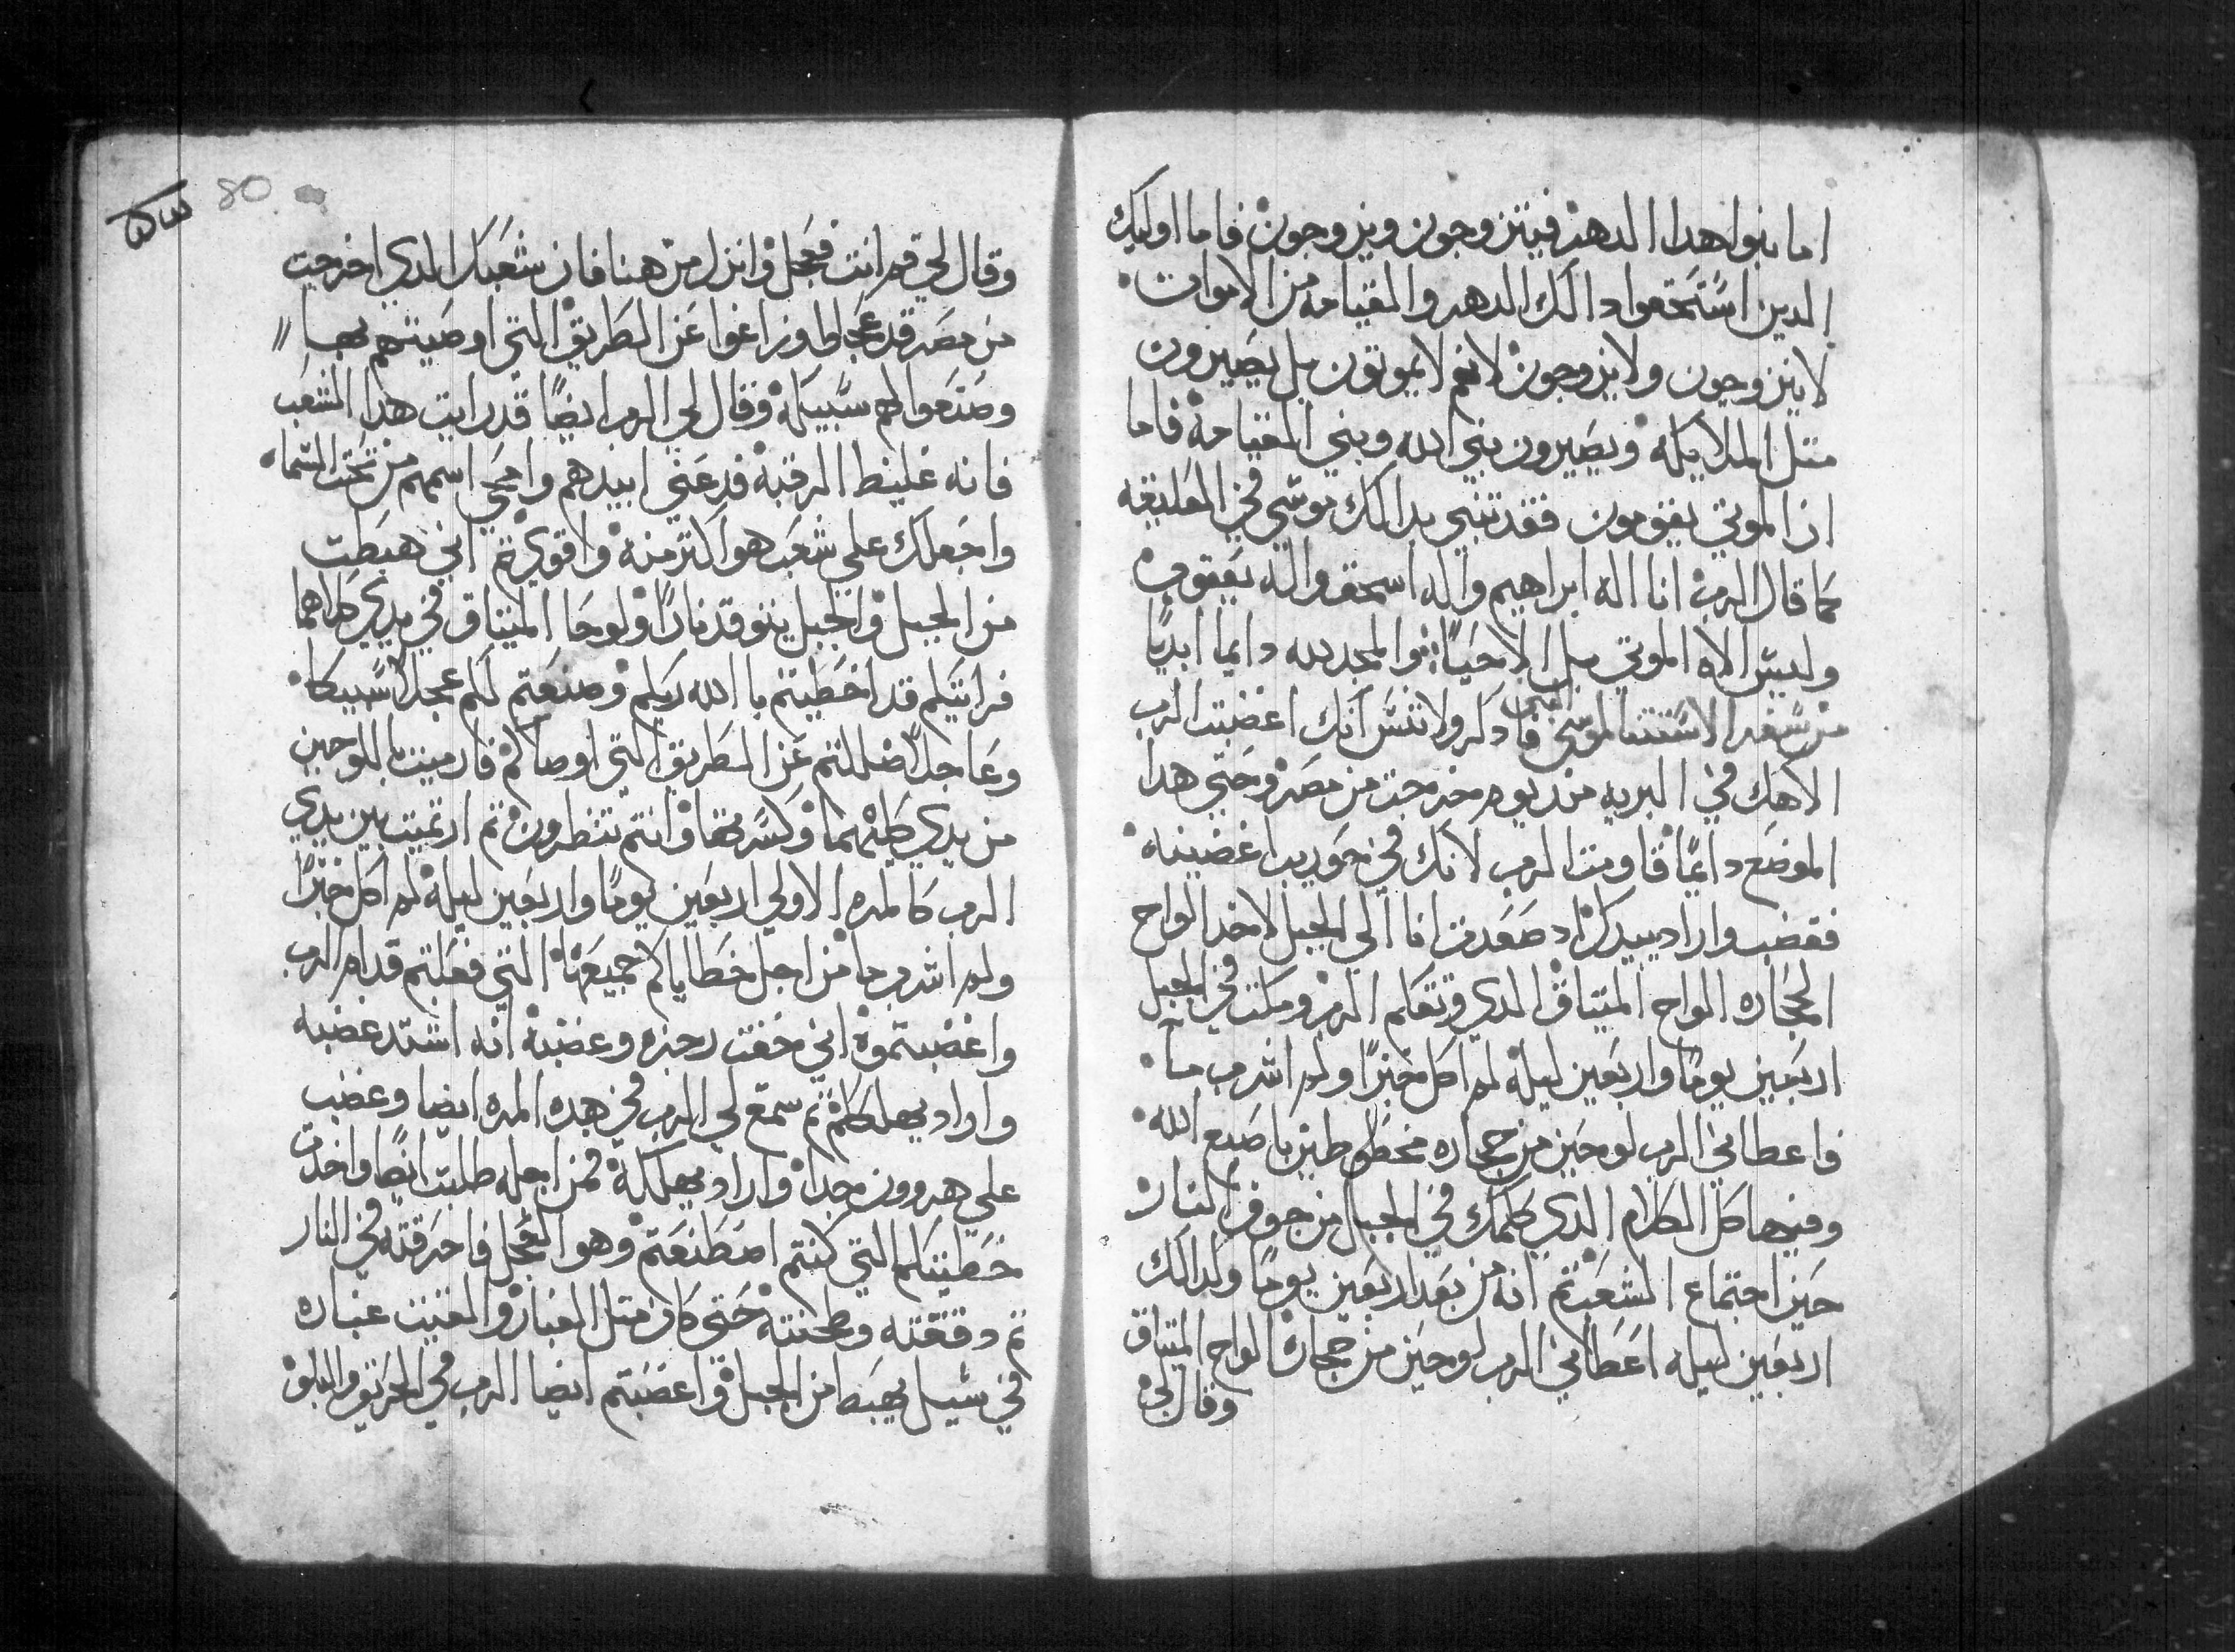 اما بنوا هدا الدهر فيتزوجون ويزوجون فاما اوليك
الدين استحقوا دالك الدهر والقيامه من الاموات
لا يتزوجون ولا يزوجون لانهم لا يموتون بل يصيرون
متل الملايكه ويصيرون بني الله وبني القيامه فاما
ان الموتي يقومون فقد نبي بدالك موسي في العليقه
كما قال الرب انا اله ابراهيم واله اسحق واله يعقوب
وليس الاه الموتي بل الاحيا والمجد لله دايما ابديا
من سفر الاستتنا لموسي النبي فادكر ولا تنس انك اغضبت الرب
الاهك في البريه من يوم خرجت من مصر وحتي هدا
الموضع دايما قاومت الرب لانك في حوريب اغضبته
فغضب واراد يبيدك اد صعدت انا الي الجبل لاخد الواح
الحجاره الواح الميتاق الدي تكلم الرب ومكتت في الجبل
اربعين يوما واربعين ليله لم اكل خبزا ولم اشرب ما
فاعطاني الرب لوحين من حجاره باصبع الله
وفيها كل الكلام الدي كلمك في الجبل من جوف النار
حين اجتماع الشعب تم انه من بعد اربعين يوما وكدالك
اربعين ليله اعطاني الرب لوحين من حجارة الواح الميتاق
وقال لي
80
وقال لي قم انت فعجل وانزل من هنا فان شعبك الدي اخرجت
من مصر قد عجلوا وزاغوا عن الطريق التي اوصيتهم بها
وصنعوا لهم سبيكة وقال لي الرب ايضا قد رايت هدا الشعب
فانه غليظ الرقبة فدعني ابيدهم وامحي اسمهم من تحت السماء
واجعلك علي شعب هو اكتر منه واقوي تم اني هبطت
من الجبل والجبل يتوقد نارا ولوحا الميتاق في يدي كلاهما
فرايتكم قد اخطيتم بالله ربكم وصنعتم لكم عجلا سبيكا
وعاجلا ضللتم عن الطريق التي اوصاكم فارميت باللوحين
من يدي كليهما وكسرتهما وانتم تنظرون تم ارتميت بين يدي
الرب كالمره الاولي اربعين يوما واربعين ليلة لم اكل خبزا
ولم اشرب ما من اجل خطاياكم جميعها التي فعلتم قدام الرب
واغضبتموه اني خفت رجزه وغضبه انه اشتد غضبه
واراد يهلككم تم سمع لي الرب في هده المره ايضا وغضب
علي هرون جدا واراد يهلكه فمن اجله طلبت ايضا واخدت
خطيتكم التي كنتم اصطنعتم وهو العجل فاحرقته في النار
تم دققته وطحنته حتي كان متل الغبار والقيت غباره
في سيل يهبط من الجبل واغضبتم ايضا الرب في الحريق والبلو